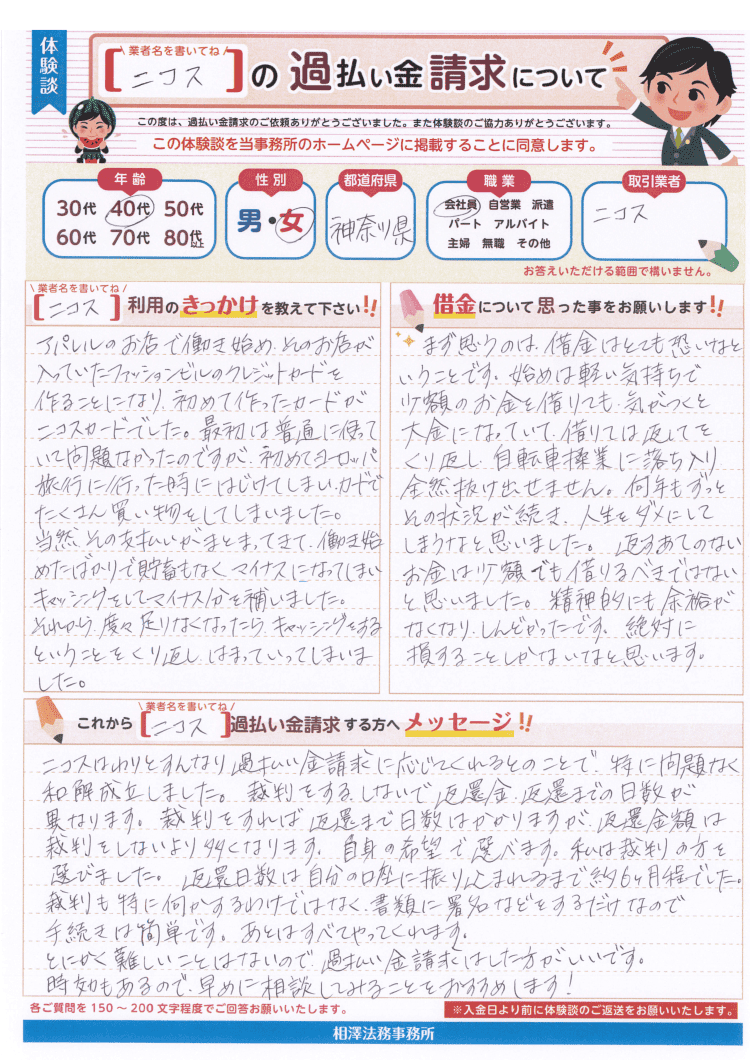 体験談
業者名を書いてね
[ニコス]の過払い金請求について
この度は、過払い金請求のご依頼ありがとうございました。また体験談のご協力ありがとうございます。
この体験談を当事務所のホームページに掲載することに同意します。
年齢
30代 40代 50代
60代 70代 80代以上
性別
男・女
都道府県
神奈川県
職業
会社員 自営業 派遣
パート アルバイト
主婦 無職 その他
取引業者
ニコス
お答えいただける範囲で構いません。
業者名を書いてね
[ニコス]利用のきっかけを教えて下さい!!
アパレルのお店で働き始め、そのお店が
入っていたファッションビルのクレジットカードを
作ることになり、初めて作ったカードが
ニコスカードでした。最初は普通に使って
いて問題なかったのですが、初めてヨーロッパ
旅行に行った時にはじけてしまいカードで
たくさん買い物をしてしまいました。
当然、その支払いがまとまってきて、働き始
めたばかりで貯蓄もなくマイナスになってしまい
キャッシングをしてマイナス分を補いました。
それから、度々足りなくなったらキャッシングをする
ということをくり返し、はまっていってしまいま
した。
借金について思った事をお願いします!!
まず思うのは、借金はとても恐いなと
いうことです。始めは軽い気持ちで
少額のお金を借りても、気がつくと
大金になっていて、借りては返してを
くり返し、自転車操業に落ち入り
全然抜け出せません。何年もずっと
その状況が続き、人生をダメにして
しまうなと思いました。返すあてのない
お金は少額でも借りるべきではない
と思いました。精神的にも余裕が
なくなり、しんどかったです。絶対に
損することしかないなと思います。
業者名を書いてね
これから[ニコス]過払い金請求する方へメッセージ!!
ニコスはわりとすんなり過払い金請求に応じてくれるとのことで、特に問題なく
和解成立しました。裁判をする、しないで返還金、返還までの日数が
異なります。裁判をすれば返還まで日数はかかりますが、返還金額は
裁判をしないより多くなります。自身の希望で選べます。私は裁判の方を
選びました。返還日数は自分の口座に振り込まれるまで約6ヶ月程でした。
裁判も特に何かするわけではなく、書類に署名などをするだけなので
手続きは簡単です。あとはすべてやってくれます。
とにかく難しいことはないので、過払い金請求はした方がいいです。
時効もあるので、早めに相談してみることをおすすめします!
各ご質問を150～200文字程度でご回答お願いいたします。
※入金日より前に体験談のご返送をお願いいたします。
相澤法務事務所